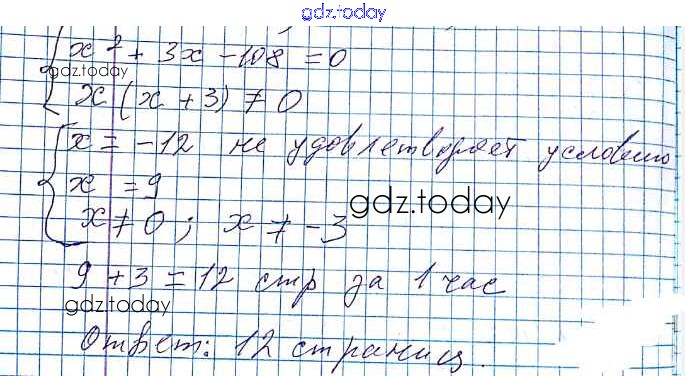 gdz.today
x² + 3x - 108 = 0
gdz.today
x (x + 3) ≠ 0
x = -12 не удовлетворяет условию
x = 9
gdz.today
x ≠ 0; x ≠ -3
9 + 3 = 12 стр за 1 час
gdz.today
Ответ: 12 страниц.